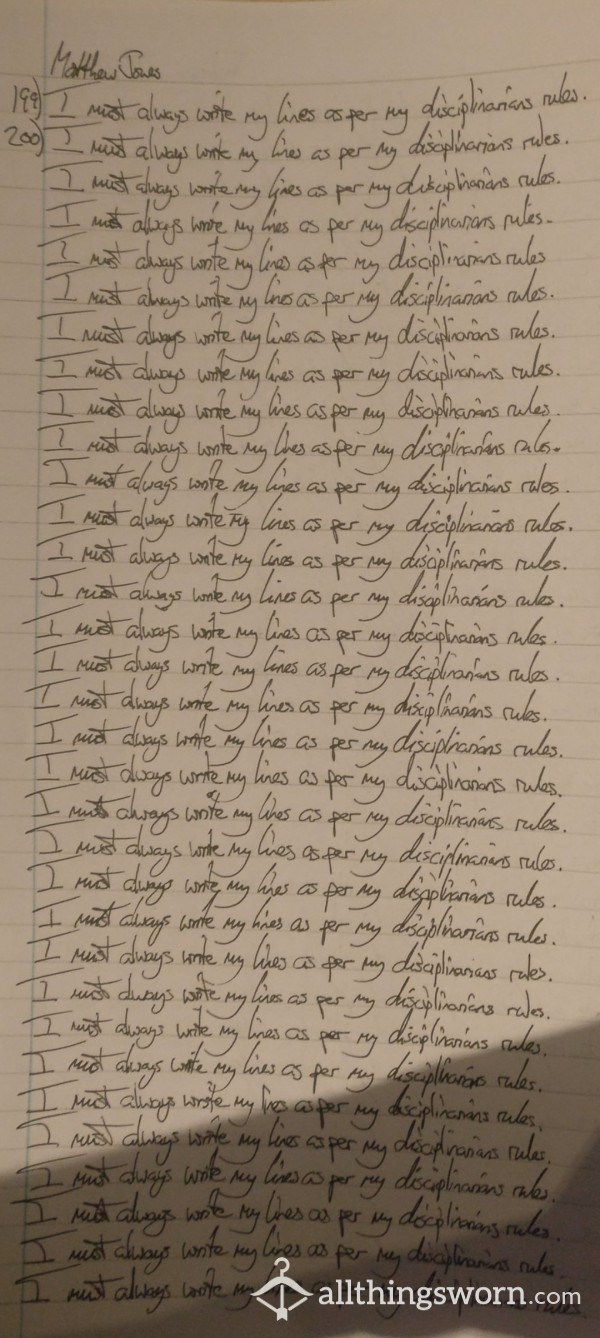 Matthew Jones
199) I must always write my lines as per my disciplinarians rules.
200) I must always write my lines as per my disciplinarians rules.
I must always write my lines as per my disciplinarians rules.
I must always write my lines as per my disciplinarians rules.
I must always write my lines as per my disciplinarians rules
I must always write my lines as per my disciplinarians rules.
I must always write my lines as per my disciplinarians rules.
I must always write my lines as per my disciplinarians rules.
I must always write my lines as per my disciplinarians rules.
I must always write my lines as per my disciplinarians rules.
I must always write my lines as per my disciplinarians rules.
I must always write my lines as per my disciplinarians rules.
I must always write my lines as per my disciplinarians rules.
I must always write my lines as per my disciplinarians rules.
I must always write my lines as per my disciplinarians rules.
I must always write my lines as per my disciplinarians rules.
I must always write my lines as per my disciplinarians rules.
I must always write my lines as per my disciplinarians rules.
I must always write my lines as per my disciplinarians rules.
I must always write my lines as per my disciplinarians rules.
I must always write my lines as per my disciplinarians rules.
I must always write my lines as per my disciplinarians rules.
I must always write my lines as per my disciplinarians rules.
I must always write my lines as per my disciplinarians rules.
I must always write my lines as per my disciplinarians rules.
I must always write my lines as per my disciplinarians rules.
I must always write my lines as per my disciplinarians rules.
I must always write my lines as per my disciplinarians rules.
I must always write my lines as per my disciplinarians rules.
I must always write my lines as per my disciplinarians rules.
I must always write my lines as per my disciplinarians rules.
I must always write my lines as per my disciplinarians rules.
I must always write my rules.
allthingsworn.com